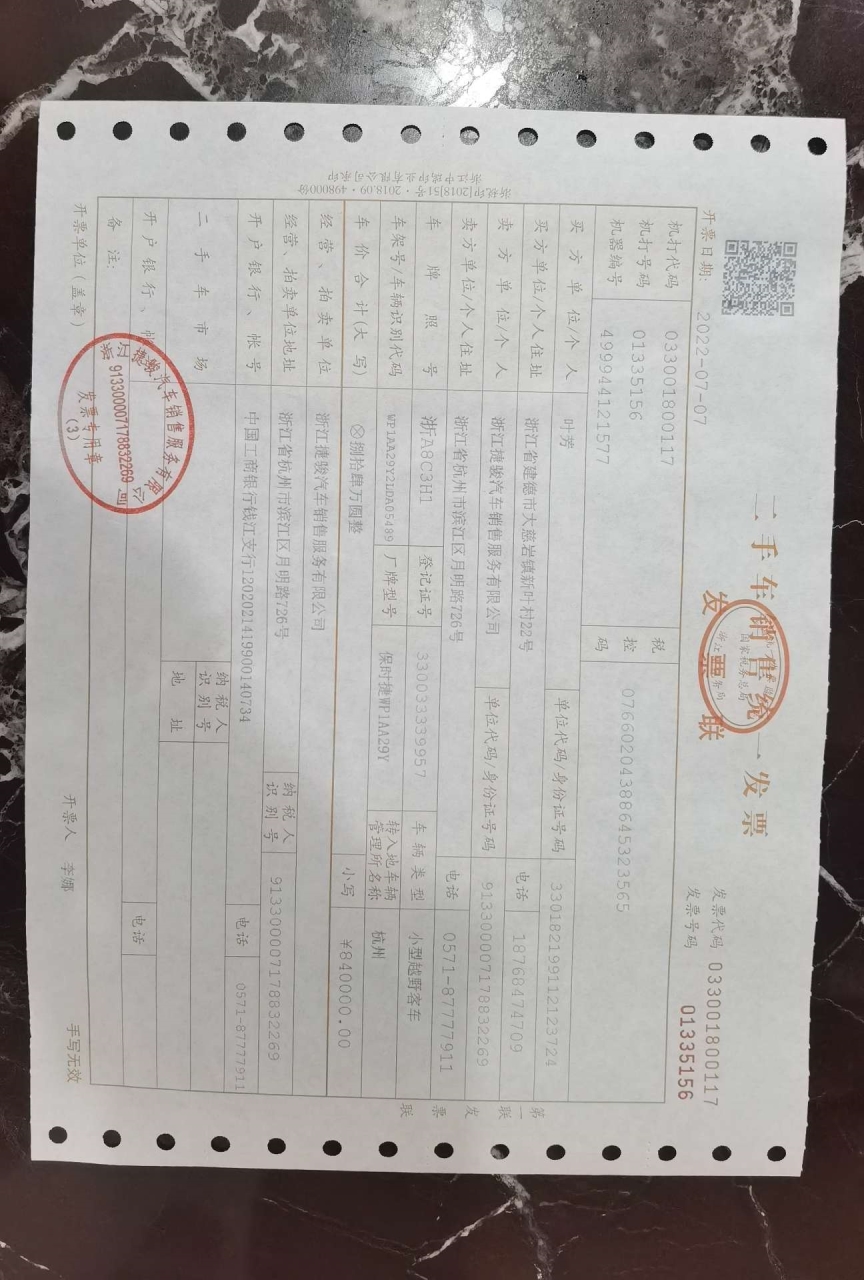 二手车销售统一发票
发票联
国家税务总局
发票代码 033001800117
发票号码 01335156
开票日期: 2022-07-07
机打代码 033001800117
机打号码 01335156
机器编号 499944121577
税控码 07660204388645323565
买方单位/个人 叶芳 单位代码/身份证号码 330182199112123724
买方单位/个人住址 浙江省建德市大慈岩镇新叶村22号 电话 18768474709
卖方单位/个人 浙江捷骏汽车销售服务有限公司 单位代码/身份证号码 913300007178832269
卖方单位/个人住址 浙江省杭州市滨江区月明路726号 电话 0571-87777911
车牌照号 浙A8C3H1 登记证号 330033339957 车辆类型 小型越野客车
车架号/车辆识别代码 WP1AA29Y2LDA05489 厂牌型号 保时捷WP1AA29Y 转入地车辆管理所名称 杭州
车价合计(大写) ⊗捌拾肆万圆整 小写 ¥840000.00
经营、拍卖单位 浙江捷骏汽车销售服务有限公司
经营、拍卖单位地址 浙江省杭州市滨江区月明路726号 纳税人识别号 913300007178832269
开户银行、帐号 中国工商银行钱江支行1202021419900140734 电话 0571-87777911
二手车市场 纳税人识别号
地址
开户银行、帐 电话
备注:
开票单位(盖章) 开票人 李娜 手写无效
浙江捷骏汽车销售服务有限公司
913300007178832269
发票专用章
(3)
第一联 发票联
浙税印[2018]51号·2018.09·498000份